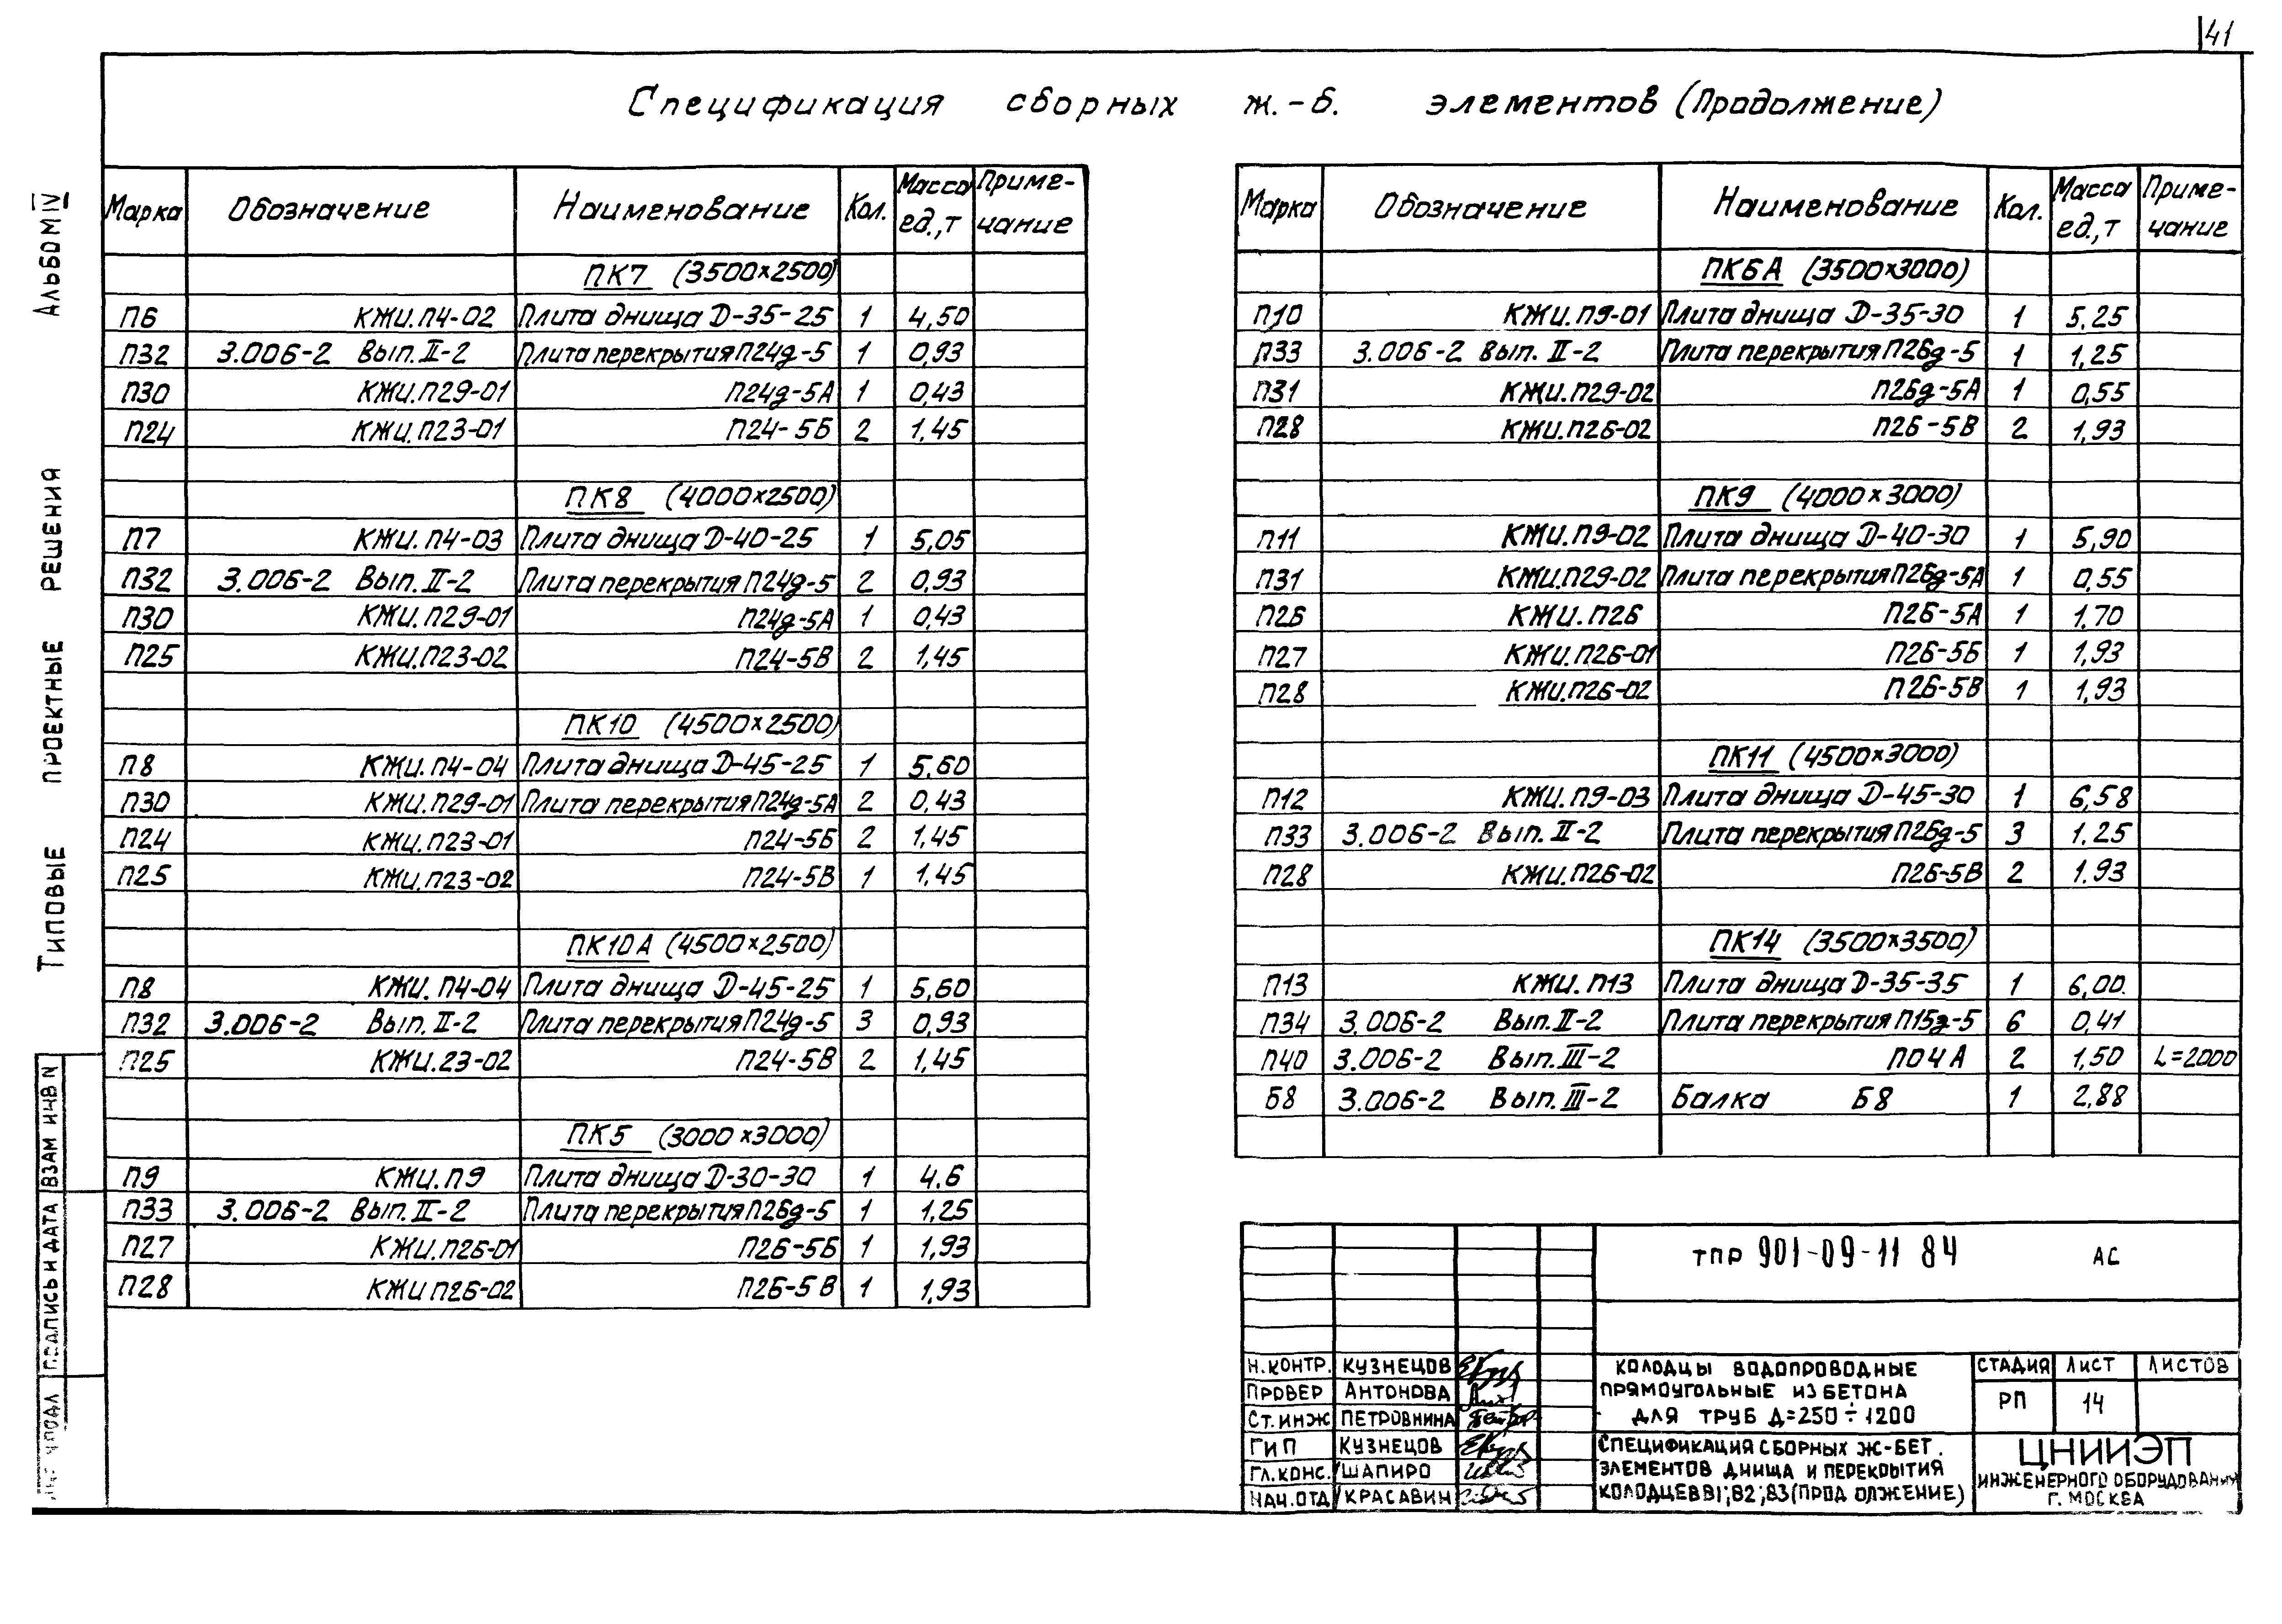 41
Спецификация сборных ж.-б. элементов (Продолжение)
Альбом IV
Типовые проектные решения
Марка Обозначение Наименование Кол. Масса ед.,т Приме-чание
ПК7 (3500×2500)
П6 КЖИ.П4-02 Плита днища Д-35-25 1 4,50
П32 3.006-2 Вып. II-2 Плита перекрытия П24д-5 1 0,93
П30 КЖИ.П29-01 П24д-5А 1 0,43
П24 КЖИ.П23-01 П24-5Б 2 1,45
ПК8 (4000×2500)
П7 КЖИ.П4-03 Плита днища Д-40-25 1 5,05
П32 3.006-2 Вып. II-2 Плита перекрытия П24д-5 2 0,93
П30 КЖИ.П29-01 П24д-5А 1 0,43
П25 КЖИ.П23-02 П24-5В 2 1,45
ПК10 (4500×2500)
П8 КЖИ.П4-04 Плита днища Д-45-25 1 5,60
П30 КЖИ.П29-01 Плита перекрытия П24д-5А 2 0,43
П24 КЖИ.П23-01 П24-5Б 2 1,45
П25 КЖИ.П23-02 П24-5В 1 1.45
ПК10А (4500×2500)
П8 КЖИ.П4-04 Плита днища Д-45-25 1 5,60
П32 3.006-2 Вып. II-2 Плита перекрытия П24д-5 3 0,93
П25 КЖИ.23-02 П24-5В 2 1,45
ПК5 (3000×3000)
П9 КЖИ.П9 Плита днища Д-30-30 1 4.6
П33 3.006-2 Вып. II-2 Плита перекрытия П26д-5 1 1,25
П27 КЖИ.П26-01 П26-5Б 1 1,93
П28 КЖИ П26-02 П26-5В 1 1,93
Марка Обозначение Наименование Кол. Масса ед.,т Приме-чание
ПК6А (3500×3000)
П10 КЖИ.П9-01 Плита днища Д-35-30 1 5,25
П33 3.006-2 Вып. II-2 Плита перекрытия П26д-5 1 1,25
П31 КЖИ.П29-02 П26д-5А 1 0,55
П28 КЖИ.П26-02 П26-5В 2 1,93
ПК9 (4000×3000)
П11 КЖИ.П9-02 Плита днища Д-40-30 1 5,90
П31 КЖИ.П29-02 Плита перекрытия П26д-5А 1 0,55
П26 КЖИ.П26 П26-5А 1 1.70
П27 КЖИ.П26-01 П26-5Б 1 1,93
П28 КЖИ.П26-02 П26-5В 1 1,93
ПК11 (4500×3000)
П12 КЖИ.П9-03 Плита днища Д-45-30 1 6,58
П33 3.006-2 Вып. II-2 Плита перекрытия П26д-5 3 1.25
П28 КЖИ.П26-02 П26-5В 2 1.93
ПК14 (3500×3500)
П13 КЖИ.П13 Плита днища Д-35-35 1 6,00
П34 3.006-2 Вып. II-2 Плита перекрытия П15д-5 6 0,41
П40 3.006-2 Вып. III-2 ПО4А 2 1,50 L=2000
Б8 3.006-2 Вып. III-2 Балка Б8 1 2,88
ТПР 901-09-11 84 АС
Н.КОНТР. КУЗНЕЦОВ
ПРОВЕР АНТОНОВА
СТ.ИНЖ ПЕТРОВНИНА
ГИП КУЗНЕЦОВ
ГЛ.КОНС. ШАПИРО
НАЧ.ОТД КРАСАВИН
КОЛОДЦЫ ВОДОПРОВОДНЫЕ
ПРЯМОУГОЛЬНЫЕ ИЗ БЕТОНА
ДЛЯ ТРУБ Д=250÷1200
СТАДИЯ ЛИСТ ЛИСТОВ
РП 14
СПЕЦИФИКАЦИЯ СБОРНЫХ Ж-БЕТ.
ЭЛЕМЕНТОВ ДНИЩА И ПЕРЕКРЫТИЯ
КОЛОДЦЕВ В1; В2; В3 (ПРОДОЛЖЕНИЕ)
ЦНИИЭП
ИНЖЕНЕРНОГО ОБОРУДОВАНИЯ
Г. МОСКВА
ВЗАМ ИНВ N
ПОДПИСЬ И ДАТА
ПОДЛ